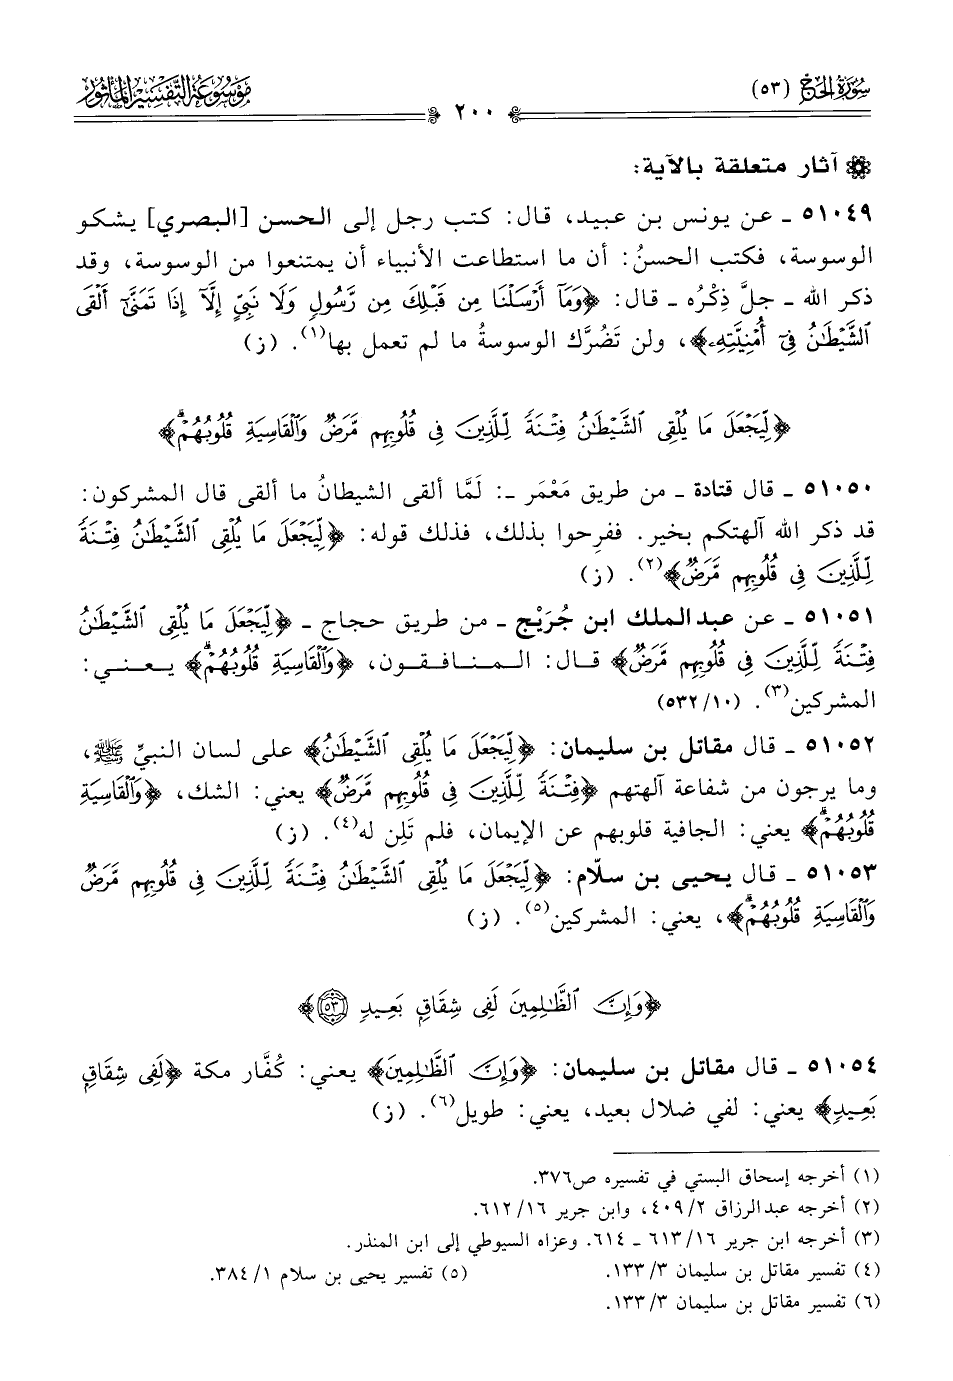 سُورَةُ الحَجِّ (٥٣)
٢٠٠
مَوْسُوعَةُ التَّفْسِيْرِ المَأْثُورِ
آثار متعلقة بالآية:
٥١٠٤٩ ـ عن يونس بن عبيد، قال: كتب رجل إلى الحسن [البصري] يشكو
الوسوسة، فكتب الحسنُ: أن ما استطاعت الأنبياء أن يمتنعوا من الوسوسة، وقد
ذكر الله ـ جلَّ ذِكْرُه ـ قال: ﴿وَمَآ أَرۡسَلۡنَا مِن قَبۡلِكَ مِن رَّسُولٖ وَلَا نَبِيٍّ إِلَّآ إِذَا تَمَنَّىٰٓ أَلۡقَى
ٱلشَّيۡطَٰنُ فِيٓ أُمۡنِيَّتِهِۦ﴾، ولن تَضُرَّك الوسوسةُ ما لم تعمل بها(١). (ز)
﴿لِّيَجۡعَلَ مَا يُلۡقِي ٱلشَّيۡطَٰنُ فِتۡنَةٗ لِّلَّذِينَ فِي قُلُوبِهِم مَّرَضٞ وَٱلۡقَاسِيَةِ قُلُوبُهُمۡۗ﴾
٥١٠٥٠ ـ قال قتادة ـ من طريق مَعْمَر ـ: لَمَّا ألقى الشيطانُ ما ألقى قال المشركون:
قد ذكر الله آلهتكم بخير. ففرِحوا بذلك، فذلك قوله: ﴿لِّيَجۡعَلَ مَا يُلۡقِي ٱلشَّيۡطَٰنُ فِتۡنَةٗ
لِّلَّذِينَ فِي قُلُوبِهِم مَّرَضٞ﴾(٢). (ز)
٥١٠٥١ ـ عن عبدالملك ابن جُرَيْج ـ من طريق حجاج ـ ﴿لِّيَجۡعَلَ مَا يُلۡقِي ٱلشَّيۡطَٰنُ
فِتۡنَةٗ لِّلَّذِينَ فِي قُلُوبِهِم مَّرَضٞ﴾ قال: المنافقون، ﴿وَٱلۡقَاسِيَةِ قُلُوبُهُمۡۗ﴾ يعني:
المشركين(٣). (١٠/ ٥٣٢)
٥١٠٥٢ ـ قال مقاتل بن سليمان: ﴿لِّيَجۡعَلَ مَا يُلۡقِي ٱلشَّيۡطَٰنُ﴾ على لسان النبيِّ ﷺ،
وما يرجون من شفاعة آلهتهم ﴿فِتۡنَةٗ لِّلَّذِينَ فِي قُلُوبِهِم مَّرَضٞ﴾ يعني: الشك، ﴿وَٱلۡقَاسِيَةِ
قُلُوبُهُمۡۗ﴾ يعني: الجافية قلوبهم عن الإيمان، فلم تَلِن له(٤). (ز)
٥١٠٥٣ ـ قال يحيى بن سلّام: ﴿لِّيَجۡعَلَ مَا يُلۡقِي ٱلشَّيۡطَٰنُ فِتۡنَةٗ لِّلَّذِينَ فِي قُلُوبِهِم مَّرَضٞ
وَٱلۡقَاسِيَةِ قُلُوبُهُمۡۗ﴾، يعني: المشركين(٥). (ز)
﴿وَإِنَّ ٱلظَّٰلِمِينَ لَفِي شِقَاقِۭ بَعِيدٖ ٥٣﴾
٥١٠٥٤ ـ قال مقاتل بن سليمان: ﴿وَإِنَّ ٱلظَّٰلِمِينَ﴾ يعني: كُفَّار مكة ﴿لَفِي شِقَاقِۭ
بَعِيدٖ﴾ يعني: لفي ضلال بعيد، يعني: طويل(٦). (ز)
(١) أخرجه إسحاق البستي في تفسيره ص٣٧٦.
(٢) أخرجه عبدالرزاق ٢/ ٤٠٩، وابن جرير ١٦/ ٦١٢.
(٣) أخرجه ابن جرير ١٦/ ٦١٣ ـ ٦١٤. وعزاه السيوطي إلى ابن المنذر.
(٤) تفسير مقاتل بن سليمان ٣/ ١٣٣. (٥) تفسير يحيى بن سلام ١/ ٣٨٤.
(٦) تفسير مقاتل بن سليمان ٣/ ١٣٣.